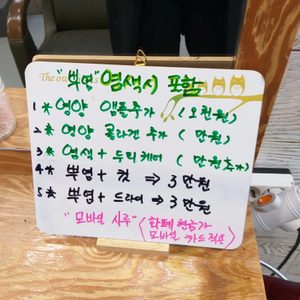 The ow
"뿌염" 염색시 포함
1 * 영양 앰플추가 (오천원)
2 * 영양 콜라겐 추가 (만원)
3 * 염색 + 두리케어 (만원추가)
4 * 뿌염 + 컷 ⇒ 3만원
5 * 뿌염 + 드라이 ⇒ 3만원
"모바일
(화폐 현금가
모바일 카드적용)